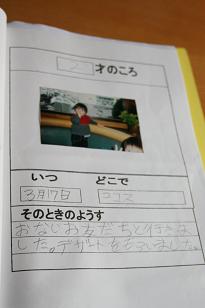 2才のころ
いつ どこで
3月17日 ココス
そのときのようす
おなじお友だちと行きま
した。デザートをもらいました。